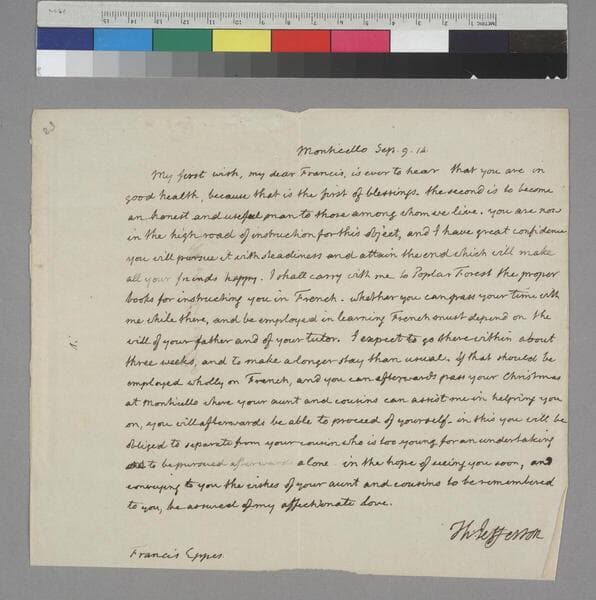 23
Monticello Sep. 9. 14
My first wish, my dear Francis, is ever to hear that you are in
good health, because that is the first of blessings. the second is to become
an honest and useful man to those among whom we live. you are now
in the high road of instruction for this object, and I have great confidence
you will pursue it with steadiness and attain the end which will make
all your friends happy. I shall carry with me to Poplar Forest the proper
books for instructing you in French. whether you can pass your time with
me while there, and be employed in learning French must depend on the
will of your father and of your tutor. I expect to go there within about
three weeks, and to make a longer stay than usual. if that should be
employed wholly on French, and you can afterwards pass your Christmas
at Monticello where your aunt and cousins can assist me in helping you
on, you will afterwards be able to proceed of yourself. in this you will be
obliged to separate from your cousin who is too young for an undertaking
to be pursued afterwards alone in the hope of seeing you soon, and
conveying to you the wishes of your aunt and cousins to be remembered
to you, be assured of my affectionate love.
Th Jefferson
Francis Eppes